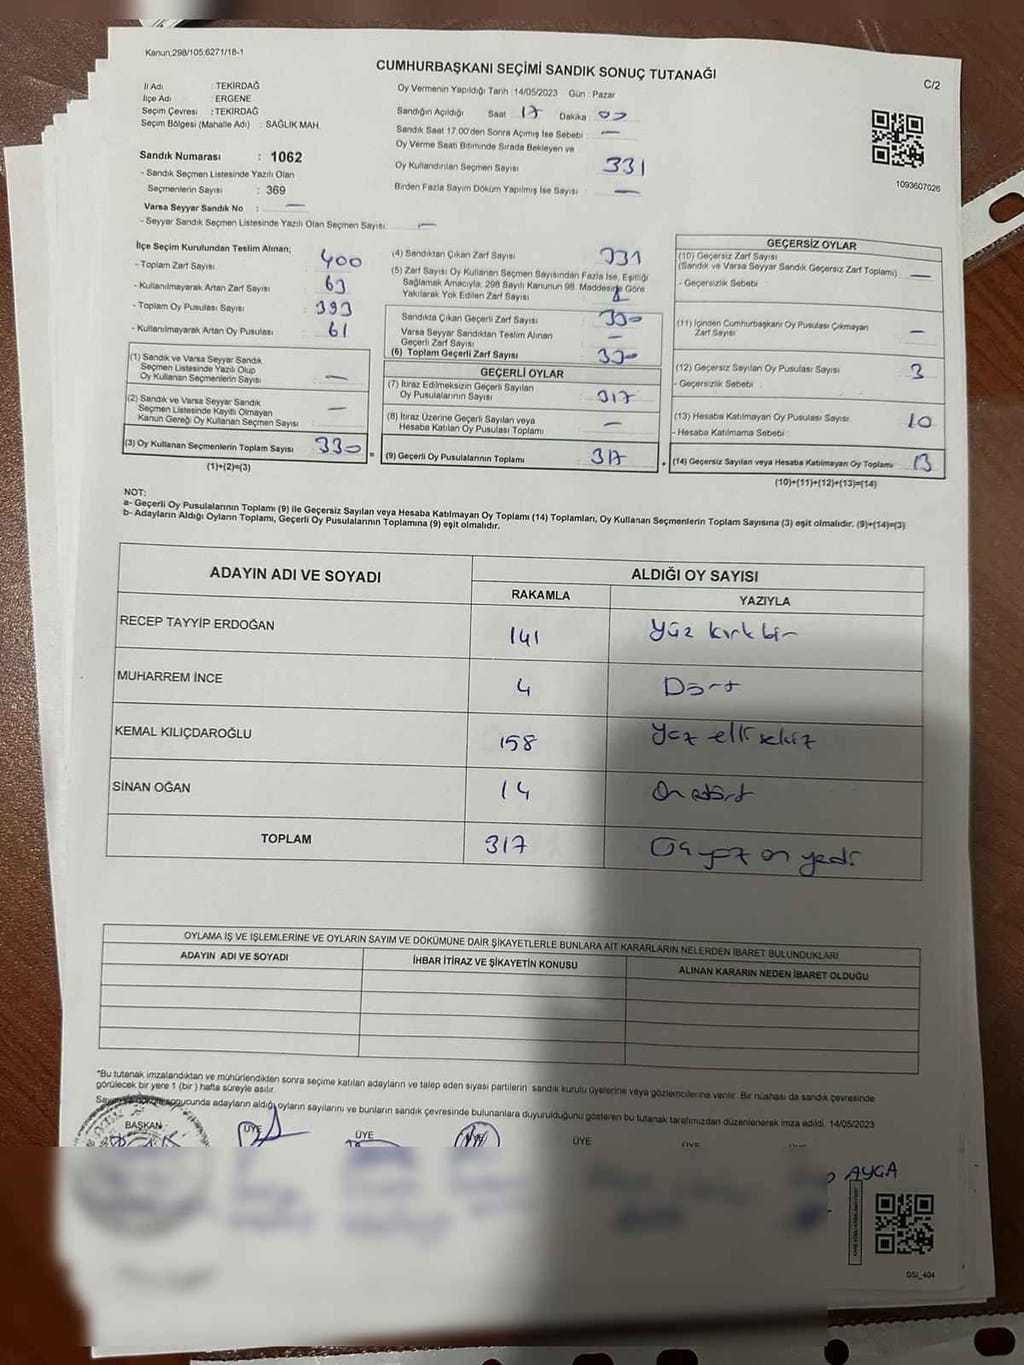 Kanun,298/105,6271/18-1
CUMHURBAŞKANI SEÇİMİ SANDIK SONUÇ TUTANAĞI
C/2
İl Adı : TEKİRDAĞ
İlçe Adı : ERGENE
Seçim Çevresi : TEKİRDAĞ
Seçim Bölgesi (Mahalle Adı) : SAĞLIK MAH
Oy Vermenin Yapıldığı Tarih :14/05/2023 Gün : Pazar
Sandığın Açıldığı Saat 17 Dakika 00
Sandık Saat 17.00'den Sonra Açımış İse Sebebi : —
Oy Verme Saati Bitiminde Sırada Bekleyen ve
Oy Kullandırılan Seçmen Sayısı 331
Birden Fazla Sayım Döküm Yapılmış İse Sayısı : —
1093607026
Sandık Numarası : 1062
- Sandık Seçmen Listesinde Yazılı Olan
Seçmenlerin Sayısı : 369
Varsa Seyyar Sandık No : —
- Seyyar Sandık Seçmen Listesinde Yazılı Olan Seçmen Sayısı: —
İlçe Seçim Kurulundan Teslim Alınan;
- Toplam Zarf Sayısı 400
- Kullanılmayarak Artan Zarf Sayısı 63
- Toplam Oy Pusulası Sayısı 393
- Kullanılmayarak Artan Oy Pusulası 61
(1) Sandık ve Varsa Seyyar Sandık
Seçmen Listesinde Yazılı Olup
Oy Kullanan Seçmenlerin Sayısı —
(2) Sandık ve Varsa Seyyar Sandık
Seçmen Listesinde Kayıtlı Olmayan
Kanun Gereği Oy Kullanan Seçmen Sayısı —
(3) Oy Kullanan Seçmenlerin Toplam Sayısı 330
(1)+(2)=(3)
(4) Sandıktan Çıkan Zarf Sayısı 331
(5) Zarf Sayısı Oy Kullanan Seçmen Sayısından Fazla İse, Eşitliği
Sağlamak Amacıyla, 298 Sayılı Kanunun 98. Maddesine Göre
Yakılarak Yok Edilen Zarf Sayısı 1
Sandıkta Çıkan Geçerli Zarf Sayısı 330
Varsa Seyyar Sandıktan Teslim Alınan
Geçerli Zarf Sayısı —
(6) Toplam Geçerli Zarf Sayısı 330
GEÇERLİ OYLAR
(7) İtiraz Edilmeksizin Geçerli Sayılan
Oy Pusulalarının Sayısı 317
(8) İtiraz Üzerine Geçerli Sayılan veya
Hesaba Katılan Oy Pusulası Toplamı —
= (9) Geçerli Oy Pusulalarının Toplamı 317
GEÇERSİZ OYLAR
(10) Geçersiz Zarf Sayısı
(Sandık ve Varsa Seyyar Sandık Geçersiz Zarf Toplamı) —
- Geçersizlik Sebebi :
(11) İçinden Cumhurbaşkanı Oy Pusulası Çıkmayan
Zarf Sayısı —
(12) Geçersiz Sayılan Oy Pusulası Sayısı 3
- Geçersizlik Sebebi :
(13) Hesaba Katılmayan Oy Pusulası Sayısı 10
- Hesaba Katılmama Sebebi :
+ (14) Geçersiz Sayılan veya Hesaba Katılmayan Oy Toplamı 13
(10)+(11)+(12)+(13)=(14)
NOT:
a- Geçerli Oy Pusulalarının Toplamı (9) ile Geçersiz Sayılan veya Hesaba Katılmayan Oy Toplamı (14) Toplamları, Oy Kullanan Seçmenlerin Toplam Sayısına (3) eşit olmalıdır. (9)+(14)=(3)
b- Adayların Aldığı Oyların Toplamı, Geçerli Oy Pusulalarının Toplamına (9) eşit olmalıdır.
ADAYIN ADI VE SOYADI ALDIĞI OY SAYISI
RAKAMLA YAZIYLA
RECEP TAYYİP ERDOĞAN 141 Yüz kırk bir
MUHARREM İNCE 4 Dört
KEMAL KILIÇDAROĞLU 158 Yüz elli sekiz
SİNAN OĞAN 14 On dört
TOPLAM 317 Üç yüz on yedi
OYLAMA İŞ VE İŞLEMLERİNE VE OYLARIN SAYIM VE DÖKÜMÜNE DAİR ŞİKAYETLERLE BUNLARA AİT KARARLARIN NELERDEN İBARET BULUNDUKLARI
ADAYIN ADI VE SOYADI İHBAR İTİRAZ VE ŞİKAYETİN KONUSU ALINAN KARARIN NEDEN İBARET OLDUĞU
*Bu tutanak imzalandıktan ve mühürlendikten sonra seçime katılan adayların ve talep eden siyasi partilerin sandık kurulu üyelerine veya gözlemcilerine verilir. Bir nüshası da sandık çevresinde
görülecek bir yere 1 (bir ) hafta süreyle asılır.
sonucunda adayların aldığı oyların sayılarını ve bunların sandık çevresinde bulunanlara duyurulduğunu gösteren bu tutanak tarafımızdan düzenlenerek imza edildi. 14/05/2023
BAŞKAN ÜYE ÜYE ÜYE ÜYE
AYGA
SSİ_404